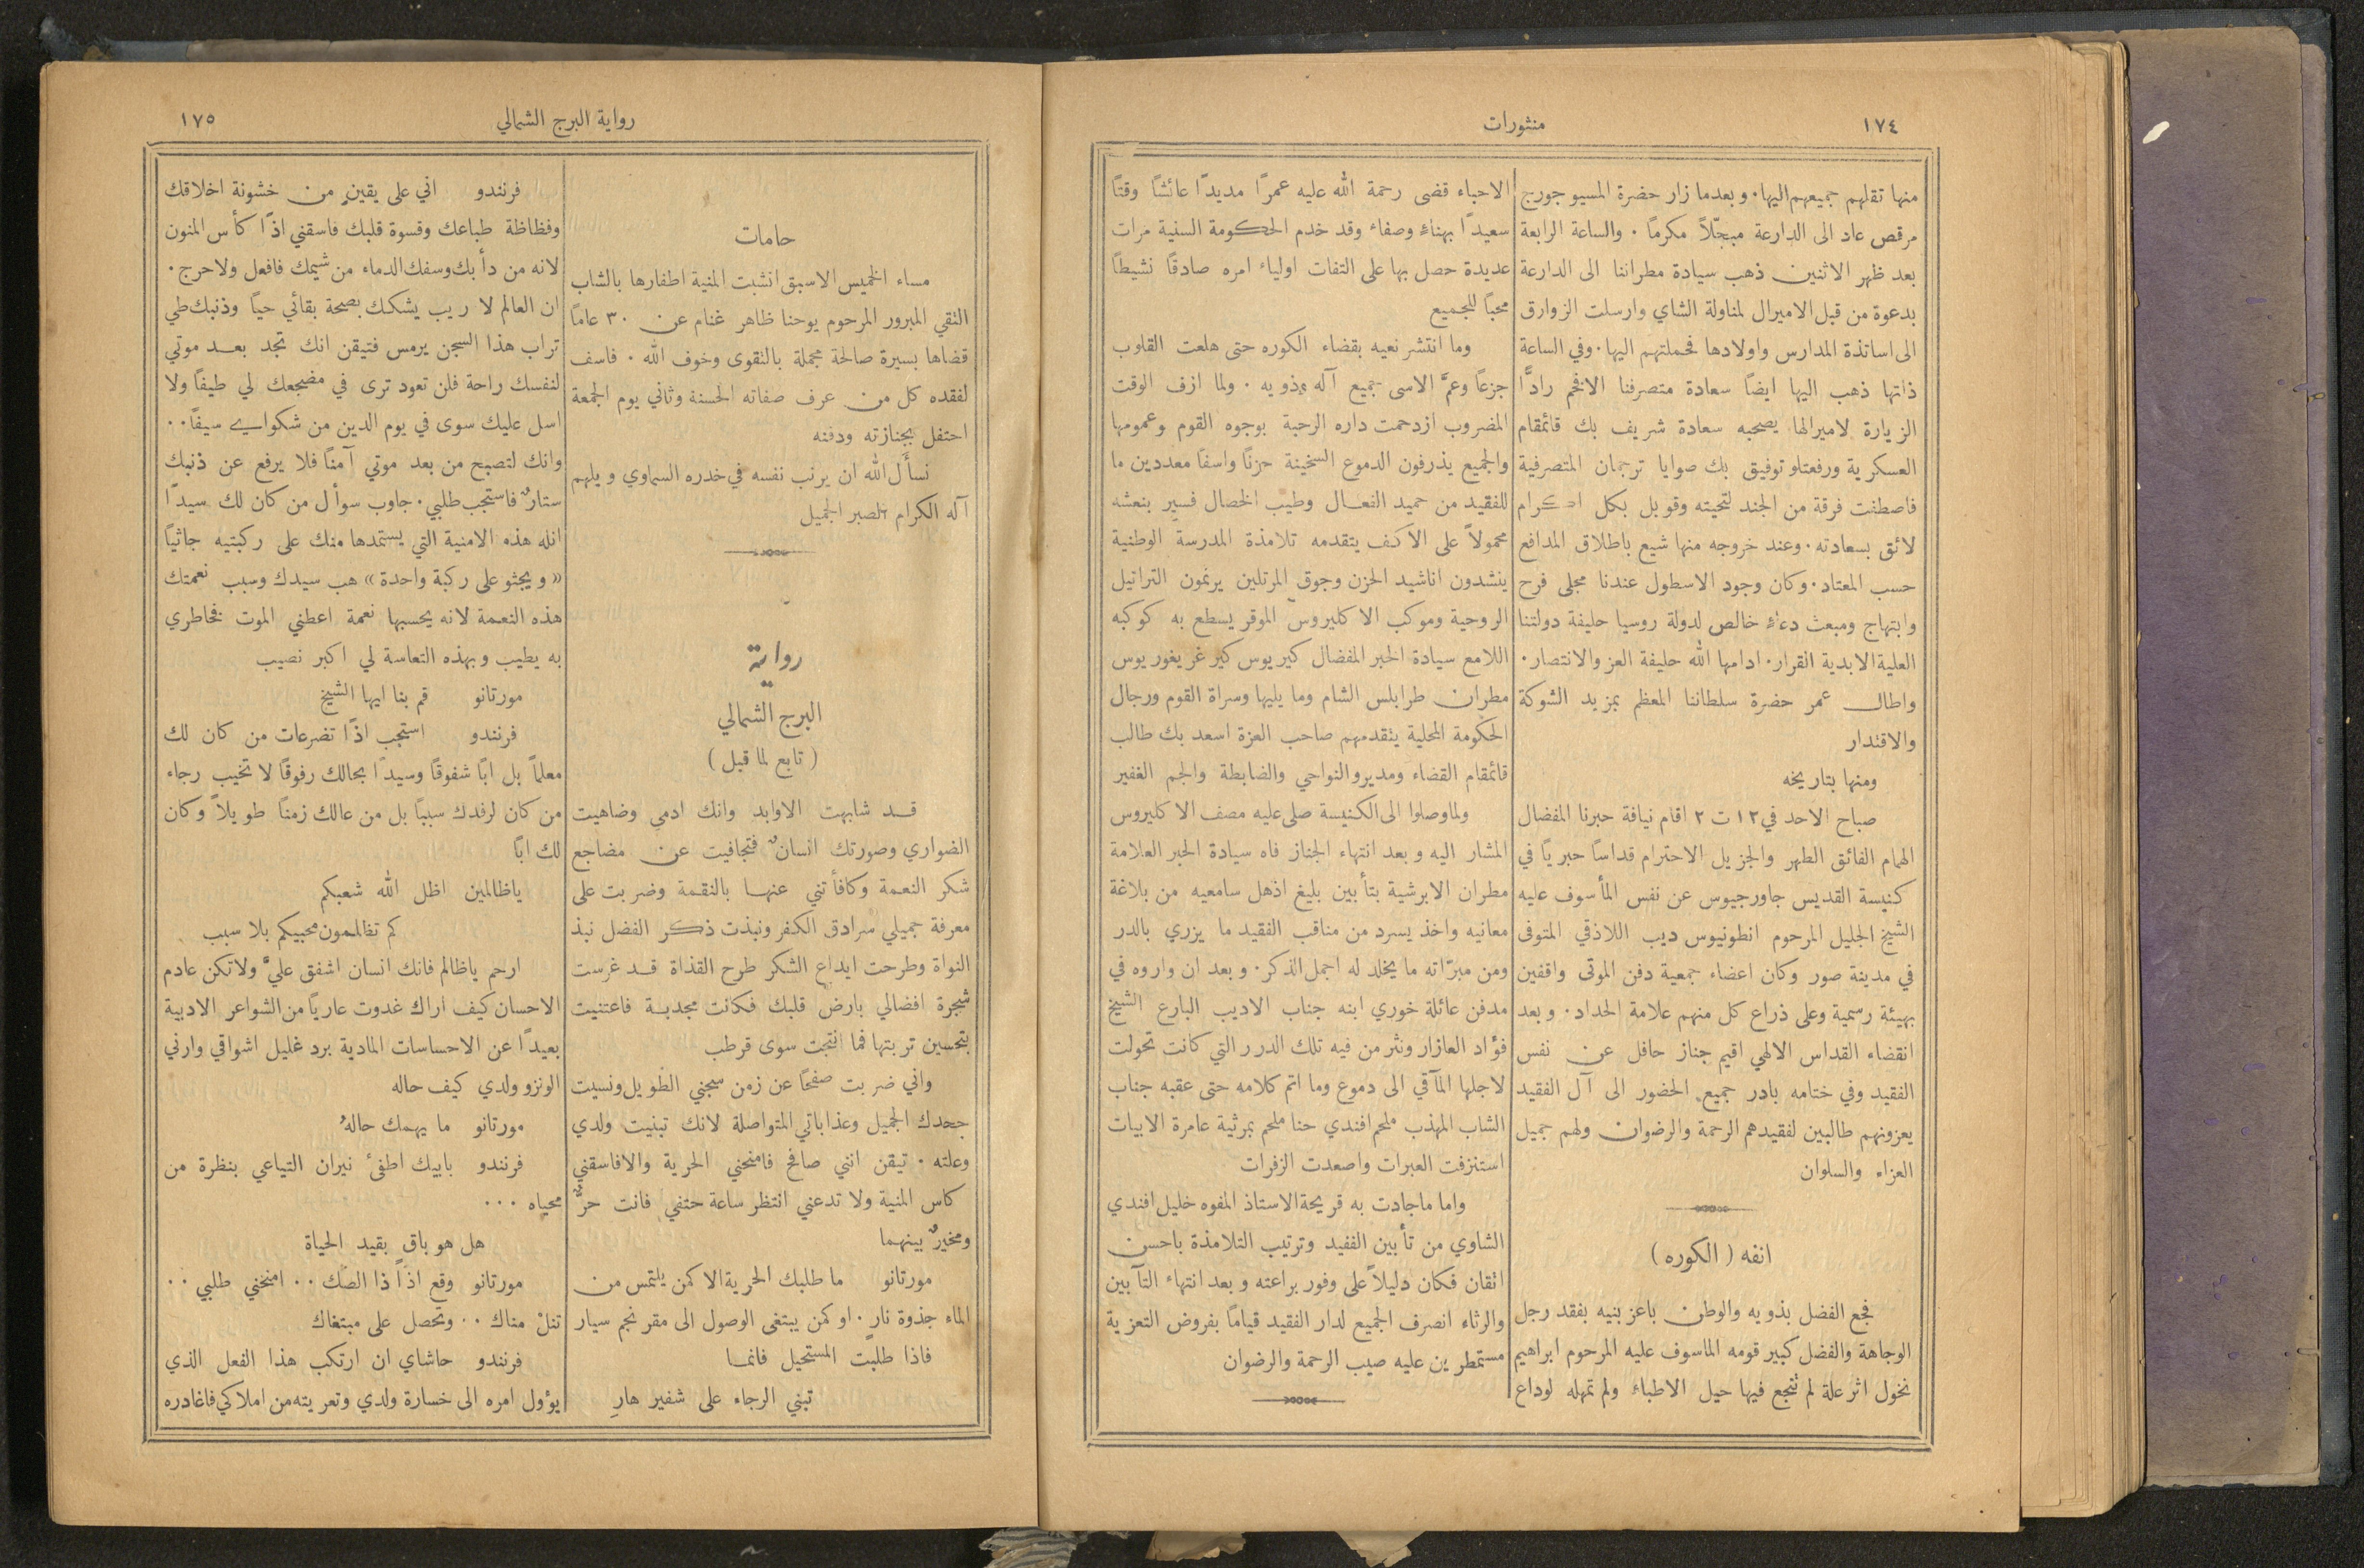 ١٧٤
منثورات
منها تقلهم جميعهم اليها. وبعدما زار حضرة المسيو جورج
مرقص عاد الى الدارعة مبجّلاً مكرماً. والساعة الرابعة
بعد ظهر الاثنين ذهب سيادة مطراننا الى الدارعة
بدعوة من قبل الاميرال لمناولة الشاي وارسلت الزوارق
الى اساتذة المدارس واولادها فحملتهم اليها. وفي الساعة
ذاتها ذهب اليها ايضاً سعادة متصرفنا الافخم رادًّا
الزيارة لاميرالها يصحبه سعادة شريف بك قائمقام
العسكرية ورفعتلو توفيق بك صوايا ترجمان المتصرفية
فاصطفت فرقة من الجند لتحيته وقوبل بكل اكرام
لائق بسعادته. وعند خروجه منها شيع باطلاق المدافع
حسب المعتاد. وكان وجود الاسطول عندنا مجلى فرح
وابتهاج ومبعث دعاءٍ خالص لدولة روسيا حليفة دولتنا
العلية الابدية القرار. ادامها الله حليفة العز والانتصار.
واطال عمر حضرة سلطاننا المعظم بمزيد الشوكة
والاقتدار
ومنها بتاريخه
صباح الاحد في ١٢ ت ٢ اقام نيافة حبرنا المفضال
الهمام الفائق الطهر والجزيل الاحترام قداساً حبرياً في
كنيسة القديس جاورجيوس عن نفس المأسوف عليه
الشيخ الجليل المرحوم انطونيوس ديب اللاذقي المتوفى
في مدينة صور وكان اعضاء جمعية دفن الموتى واقفين
بهيئة رسمية وعلى ذراع كل منهم علامة الحداد. وبعد
انقضاء القداس الالهي اقيم جناز حافل عن نفس
الفقيد وفي ختامه بادر جميع الحضور الى آل الفقيد
يعزونهم طالبين لفقيدهم الرحمة والرضوان ولهم جميل
العزاء والسلوان
انفه (الكوره)
فجع الفضل بذويه والوطن باعز بنيه بفقد رجل
الوجاهة والفضل كبير قومه الماسوف عليه المرحوم ابراهيم
نخول اثر علة لم تنجع فيها حيل الاطباء ولم تمهله لوداع
الاحباء قضى رحمة الله عليه عمرًا مديدًا عائشاً وقتاً
سعيدًا بهناءٍ وصفاء وقد خدم الحكومة السنية مرات
عديدة حصل بها على التفات اولياء امره صادقاً نشيطاً
محباً للجميع
وما انتشر نعيه بقضاء الكوره حتى هلعت القلوب
جزعاً وعمَّ الاسى جميع آله وذويه. ولما ازف الوقت
المضروب ازدحمت داره الرحبة بوجوه القوم وعمومها
والجميع يذرفون الدموع السخينة حزناً واسفاً معددين ما
للفقيد من حميد الفعال وطيب الخصال فسير بنعشه
محمولاً على الاكف يتقدمه تلامذة المدرسة الوطنية
ينشدون اناشيد الحزن وجوق المرتلين يرنمون التراتيل
الروحية وموكب الاكليروس الموقر يسطع به كوكبه
اللامع سيادة الحبر المفضال كيريوس كير غريغوريوس
مطران طرابلس الشام وما يليها وسراة القوم ورجال
الحكومة المحلية يتقدمهم صاحب العزة اسعد بك طالب
قائمقام القضاء ومديرو النواحي والضابطة والجم الغفير
ولما وصلوا الى الكنيسة صلى عليه مصف الاكليروس
المشار اليه وبعد انتهاء الجناز فاه سيادة الحبر العلامة
مطران الابرشية بتأبين بليغ اذهل سامعيه من بلاغة
معانيه واخذ يسرد من مناقب الفقيد ما يزري بالدر
ومن مبرّاته ما يخلد له اجمل الذكر. وبعد ان واروه في
مدفن عائلة خوري ابنه جناب الاديب البارع الشيخ
فؤاد العازار ونثر من فيه تلك الدرر التي كانت تحولت
لاجلها المآقي الى دموع وما اتم كلامه حتى عقبه جناب
الشاب المهذب ملحم افندي حنا ملحم بمرثية عامرة الابيات
استنزفت العبرات واصعدت الزفرات
واما ماجادت به قريحة الاستاذ المفوه خليل افندي
الشاوي من تأبين الفقيد وترتيب التلامذة باحسن
اتقان فكان دليلاً على وفور براعته وبعد انتهاء التآبين
والرثاء انصرف الجميع لدار الفقيد قياماً بفروض التعزية
مستمطرين عليه صيب الرحمة والرضوان
رواية البرج الشمالي
١٧٥
حامات
مساء الخميس الاسبق انشبت المنية اظفارها بالشاب
التقي المبرور المرحوم يوحنا ظاهر غنام عن ٣٠ عاماً
قضاها بسيرة صالحة مجملة بالتقوى وخوف الله. فاسف
لفقده كل من عرف صفاته الحسنة وثاني يوم الجمعة
احتفل بجنازته ودفنه
نسأل الله ان يرتب نفسه في خدره السماوي ويلهم
آله الكرام الصبر الجميل
رواية
البرج الشمالي
(تابع لما قبل)
قد شابهت الاوابد وانك ادمي وضاهيت
الضواري وصورتك انسانٌ فتجافيت عن مضاجع
شكر النعمة وكافأتني عنها بالنقمة وضربت على
معرفة جميلي سرادق الكفر ونبذت ذكر الفضل نبذ
النواة وطرحت ايداع الشكر طرح القذاة قد غرست
شجرة افضالي بارض قلبك فكانت مجدبة فاعتنيت
بتحسين تربتها فما انتجت سوى قرطب
واني ضربت صفحاً عن زمن سجني الطويل ونسيت
جحدك الجميل وعذاباتي المتواصلة لانك تبنيت ولدي
وعلته. تيقن انني صافح فامنحني الحرية والا فاسقني
كاس المنية ولا تدعني انتظر ساعة حتفي فانت حرٌّ
ومخيرٌ بينهما
مورتانو ما طلبك الحرية الا كمن يلتمس من
الماء جذوة نارٍ. او كمن يبتغى الوصول الى مقر نجم سيار
فاذا طلبت المستحيل فانما
تبني الرجاء على شفير هارِ
فرنندو اني على يقينٍ من خشونة اخلاقك
وفظاظة طباعك وقسوة قلبك فاسقني اذًا كأس المنون
لانه من دأبك وسفك الدماء من شيمك فافعل ولا حرج.
ان العالم لا ريب يشكك بصحة بقائي حياً وذنبك طي
تراب هذا السجن يرمس فتيقن انك تجد بعد موتي
لنفسك راحة فلن تعود ترى في مضجعك لي طيفاً ولا
اسل عليك سوى في يوم الدين من شكواي سيفاً..
وانك لتصبح من بعد موتي آمناً فلا يرفع عن ذنبك
ستارٌ فاستجب طلبي. جاوب سوأل من كان لك سيدًا
انله هذه الامنية التي يستمدها منك على ركبتيه جاثياً
«ويجثو على ركبة واحدة» هب سيدك وسبب نعمتك
هذه النعمة لانه يحسبها نعمة اعطني الموت فخاطري
به يطيب وبهذه التعاسة لي اكبر نصيب
مورتانو قم بنا ايها الشيخ
فرنندو استجب اذًا تضرعات من كان لك
معلماً بل اباً شفوقاً وسيدًا بحالك رفوقاً لا تخيب رجاء
من كان لرفدك سبباً بل من عالك زمناً طويلاً وكان
لك اباً
ياظالمين اظل الله شعبكم
كم تظلمون محبيكم بلا سبب
ارحم ياظالم فانك انسان اشفق عليَّ ولا تكن عادم
الاحسان كيف اراك غدوت عارياً من الشواعر الادبية
بعيدًا عن الاحساسات المادية برد غليل اشواقي وارني
الونزو ولدي كيف حاله
مورتانو ما يهمك حالهُ
فرنندو بابيك اطفئ نيران التياعي بنظرة من
محياه ...
هل هو باقٍ بقيد الحياة
مورتانو وقع اذًا ذا الصك.. امنحني طلبي..
تنلْ مناك.. وتحصل على مبتغاك
فرنندو حاشاي ان ارتكب هذا الفعل الذي
يؤول امره الى خسارة ولدي وتعريته من املاكي فاغادره